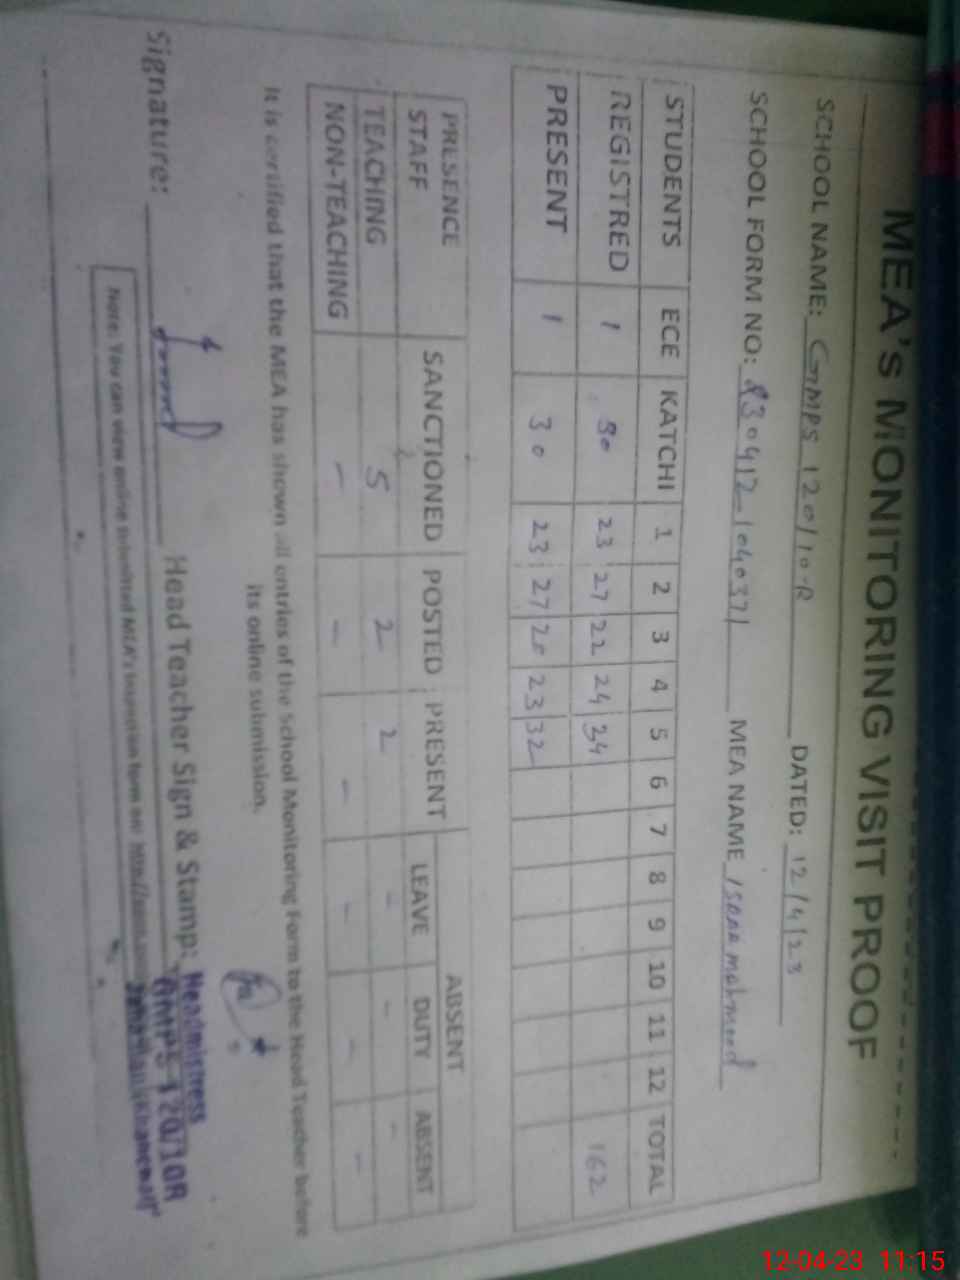 MEA's MONITORING VISIT PROOF
SCHOOL NAME: GMPS 120/10-R DATED: 12/4/23
SCHOOL FORM NO: 230412-104037 MEA NAME mahmood
STUDENTS ECE KATCHI 1 2 3 4 5 6 7 8 9 10 11 12 TOTAL
REGISTRED 1 30 23 27 22 24 34 162
PRESENT 1 30 23 27 20 23 32
PRESENCE STAFF SANCTIONED POSTED PRESENT ABSENT
LEAVE DUTY ABSENT
TEACHING 5 2 2 - - -
NON-TEACHING - - - - - -
It is certified that the MEA has shown all entries of the School Monitoring Form to the Head Teacher before
its online submission.
Signature: Head Teacher Sign & Stamp:
Headmistress
GMPS 120/10R
Note: You can view online submitted MEA's inspection form on: http://
12-04-23 11:15